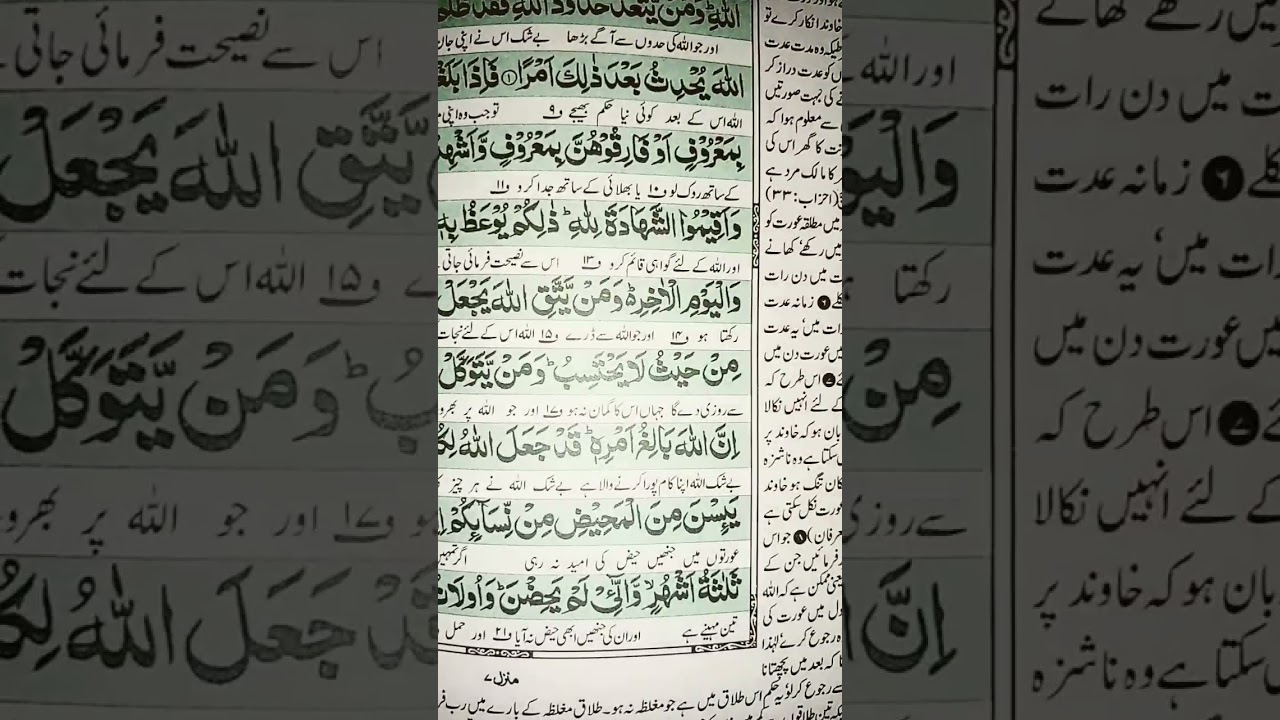 اللهِ وَمَنْ يَّتَعَدَّ حُدُوْدَ اللهِ فَقَدْ ظَلَمَ
اور جو اللہ کی حدوں سے آگے بڑھا بے شک اس نے اپنی جان
اللهَ يُحْدِثُ بَعْدَ ذٰلِكَ اَمْرًا ① فَاِذَا بَلَغْ
اللہ اس کے بعد کوئی نیا حکم بھیجے ف۹ تو جب وہ اپنی
بِمَعْرُوْفٍ اَوْ فَارِقُوْهُنَّ بِمَعْرُوْفٍ وَّاَشْهِدُ
کے ساتھ روک لو ف۱۰ یا بھلائی کے ساتھ جدا کرو ف۱۱
وَاَقِيْمُوا الشَّهَادَةَ لِلهِ ؕ ذٰلِكُمْ يُوْعَظُ بِهٖ
اور اللہ کے لئے گواہی قائم کرو ف۱۳ اس سے نصیحت فرمائی جاتی
وَالْيَوْمِ الْاٰخِرِ ؕ وَمَنْ يَّتَّقِ اللهَ يَجْعَلْ
رکھتا ہو ف۱۴ اور جو اللہ سے ڈرے ف۱۵ اللہ اس کے لئے نجات
مِنْ حَيْثُ لَا يَحْتَسِبُ ؕ وَمَنْ يَّتَوَكَّلْ
سے روزی دے گا جہاں اس کا گمان نہ ہو ف۱۷ اور جو اللہ پر بھرو
اِنَّ اللهَ بَالِغُ اَمْرِهٖ ؕ قَدْ جَعَلَ اللهُ لِكُ
بے شک اللہ اپنا کام پورا کرنے والا ہے بے شک اللہ نے ہر چیز
يَىِٕسْنَ مِنَ الْمَحِيْضِ مِنْ نِّسَآىِٕكُمْ
عورتوں میں جنھیں حیض کی امید نہ رہی اگر تمہیں
ثَلٰثَةُ اَشْهُرٍ ۙ وَّالّٰٓـِٔىْ لَمْ يَحِضْنَ ؕ وَاُولَاتُ
تین مہینے ہے اور ان کی جنھیں ابھی حیض نہ آیا ف۲۱ اور حمل
منزل ۷
خاوند انکار کرے تو
کہ وہ مدت عدت
کو عدت دراز کر
کی بہت صورتیں
سے معلوم ہوا کہ
ت کا گھر اس کی
کا مالک مرد ہے
(احزاب: ۳۳)
میں مطلقہ عورت کو
میں رکھے، کھانے
ت میں دن رات
کلے ❻ زمانہ عدت
رات میں، یہ عدت
میں عورت دن میں
ئے ❼ اس طرح کہ
کے لئے انہیں نکالا
بان ہو کہ خاوند پر
سکتا ہے وہ ناشزہ
کان تنگ ہو خاوند
عورت نکل سکتی ہے
عرفان) ❽ جو اس
فرمائیں جن کے
ممکن ہے کہ اللہ
دل میں عورت کی
رجوع کرے لہٰذا
کہ بعد میں پچھتانا
سے رجوع کر لو یہ حکم اس طلاق میں ہے جو مغلظہ نہ ہو۔ طلاق مغلظہ کے بارے میں رب فر